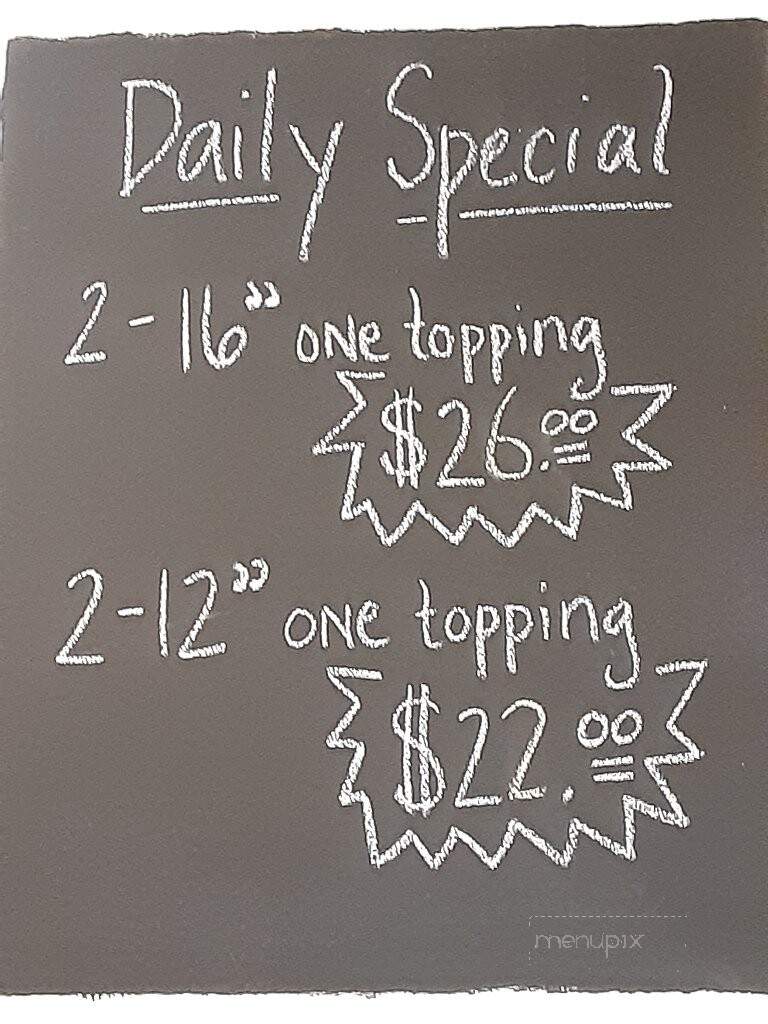 Daily Special
2-16" one topping
$26.00
2-12" one topping
$22.00
menupix